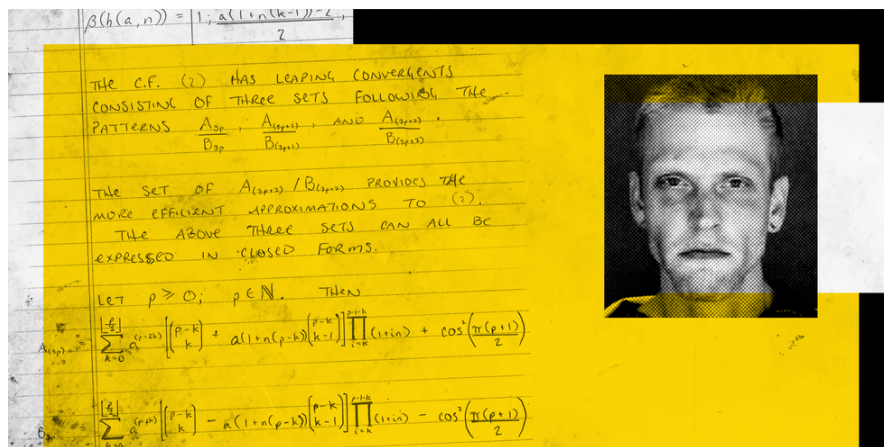 β(h(a,n)) = [1; a(1+n(k-1))-2,
2
THE C.F. (2) HAS LEAPING CONVERGENTS
CONSISTING OF THREE SETS FOLLOWING THE
PATTERNS A₃ₚ/B₃ₚ, A₍₃ₚ₊₁₎/B₍₃ₚ₊₁₎, AND A₍₃ₚ₊₂₎/B₍₃ₚ₊₂₎.
THE SET OF A₍₃ₚ₊₂₎/B₍₃ₚ₊₂₎ PROVIDES THE
MORE EFFICIENT APPROXIMATIONS TO (2).
THE ABOVE THREE SETS CAN ALL BE
EXPRESSED IN CLOSED FORMS.
LET p ≥ 0; p ∈ ℕ. THEN
A₍₃ₚ₎ = ∑_{k=0}^{⌊p/2⌋} a^{(p-2k)} [(p-k k) + a(1+n(p-k))(p-k k-1)] ∏_{i=k}^{p-1-k} (1+in) + cos²(π(p+1)/2)
∑ a^{(p-2k)} [(p-k k) - a(1+n(p-k))(p-k k-1)] ∏_{i=k}^{p-1-k} (1+in) - cos²(π(p+1)/2)